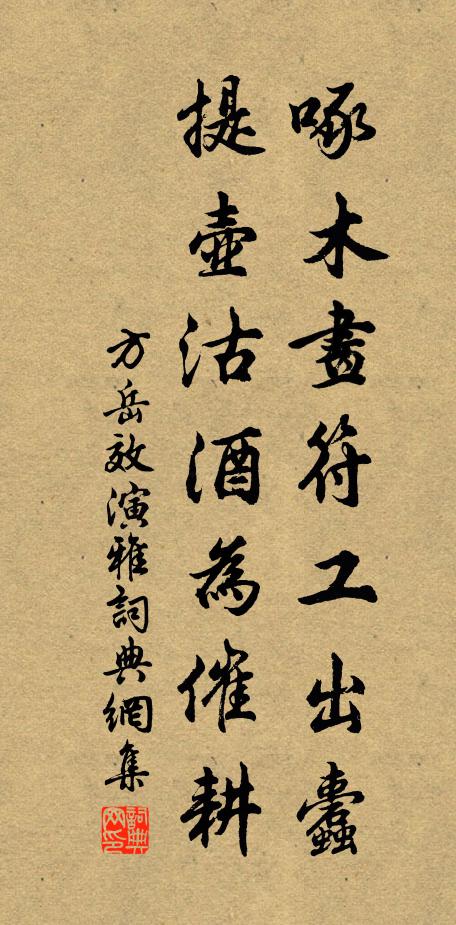 啄木畫符工出蠹
提壺沽酒為催耕
方岳效演雅詞典網集
詞典网印